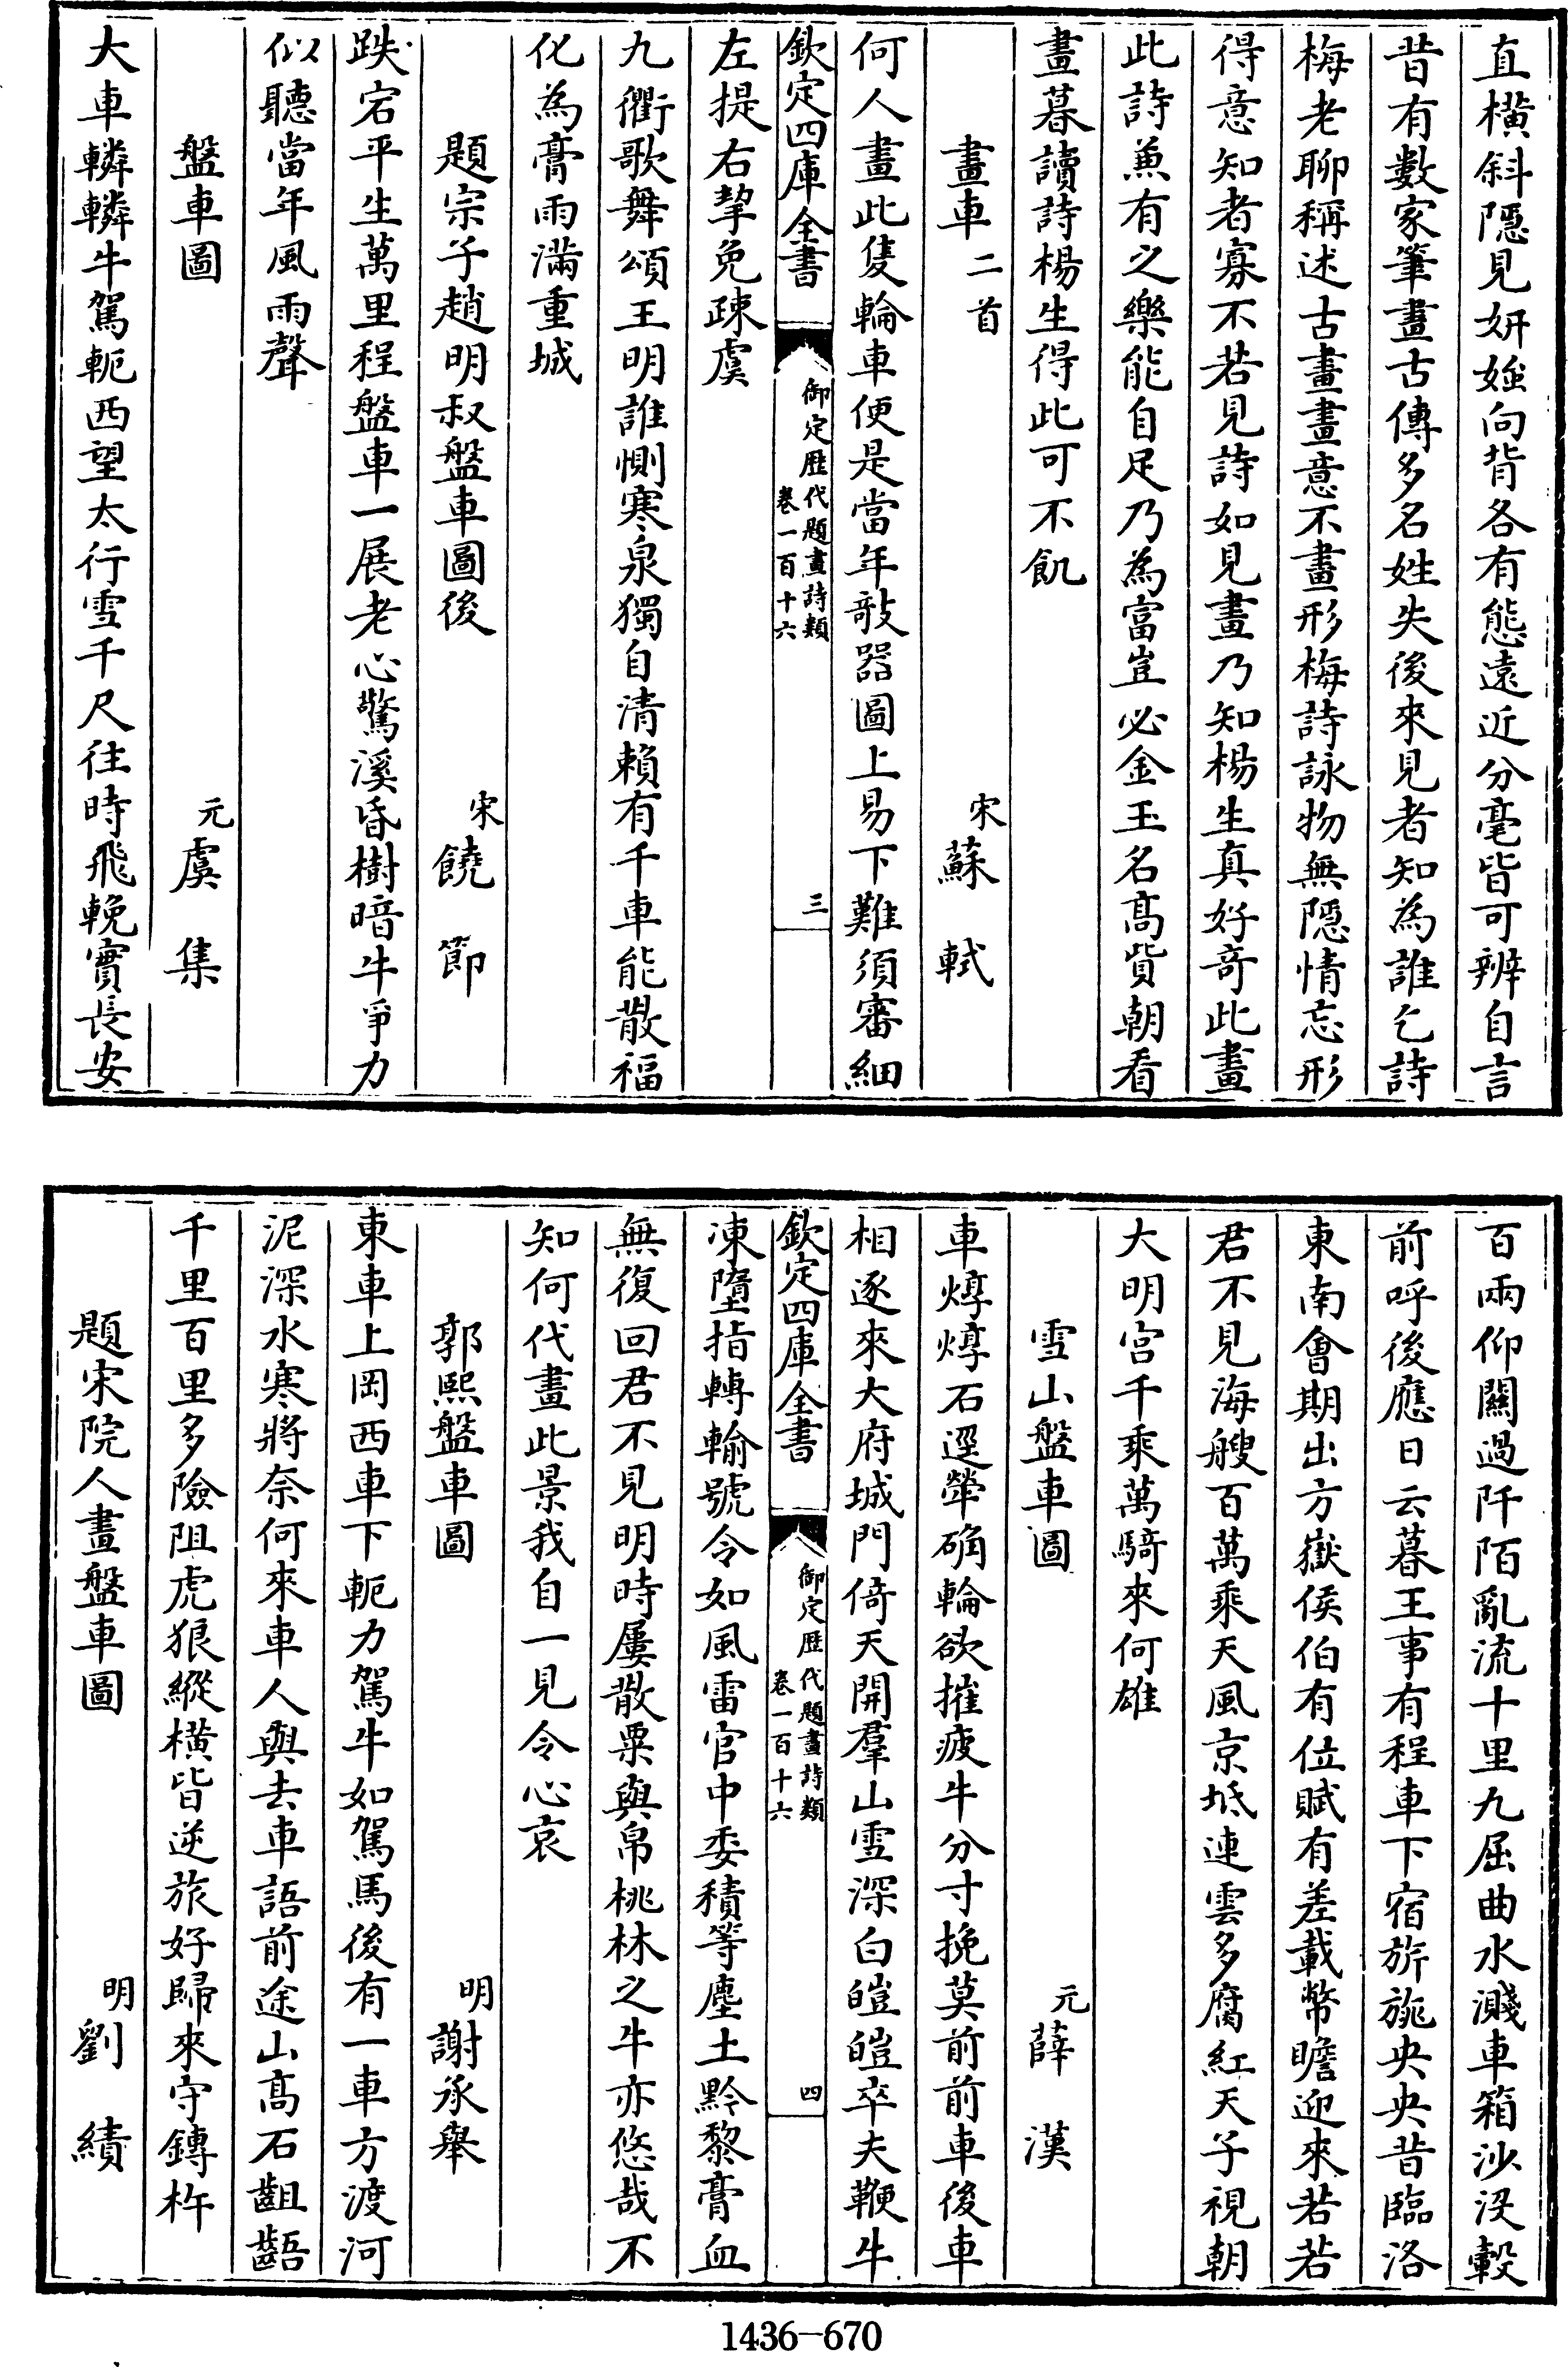 直橫斜隱見妍媸向背各有態遠近分毫皆可辨自言
昔有數家筆畫古傳多名姓失後來見者知為誰乞詩
梅老聊稱述古畫畫意不畫形梅詩詠物無隱情忘形
得意知者寡不若見詩如見畫乃知楊生真好奇此畫
此詩兼有之樂能自足乃為富豈必金玉名髙貲朝看
畫暮讀詩楊生得此可不飢
畫車二首 宋蘇軾
何人畫此隻輪車便是當年敧器圖上易下難須審細
欽定四庫全書 御定歴代題畫詩類 卷一百十六 三
左提右挈免疎虞
九衢歌舞頌王明誰惻寒泉獨自清賴有千車能散福
化為膏雨滿重城
題宗子趙明叔盤車圖後 宋饒節
跌宕平生萬里程盤車一展老心驚溪昏樹暗牛爭力
似聽當年風雨聲
盤車圖 元虞集
大車轔轔牛駕軛西望太行雪千尺往時飛輓實長安
百兩仰關過阡陌亂流十里九屈曲水濺車箱沙沒轂
前呼後應日云暮王事有程車下宿旂旐央央昔臨洛
東南會期出方嶽侯伯有位賦有差載幣瞻迎來若若
君不見海艘百萬乘天風京坻連雲多腐紅天子視朝
大明宫千乘萬騎來何雄
雪山盤車圖 元薛漢
車焞焞石逕犖确輪欲摧疲牛分寸挽莫前前車後車
相逐來大府城門倚天開羣山雪深白皚皚卒夫鞭牛
欽定四庫全書 御定歴代題畫詩類 卷一百十六 四
凍墮指轉輸號令如風雷官中委積等塵土黔黎膏血
無復回君不見明時屢散粟與帛桃林之牛亦悠哉不
知何代畫此景我自一見令心哀
郭熙盤車圖 明謝承舉
東車上岡西車下軛力駕牛如駕馬後有一車方渡河
泥深水寒將奈何來車人與去車語前途山髙石齟齬
千里百里多險阻虎狼縱橫皆逆旅好歸來守鏄杵
題宋院人畫盤車圖 明劉績
1436-670